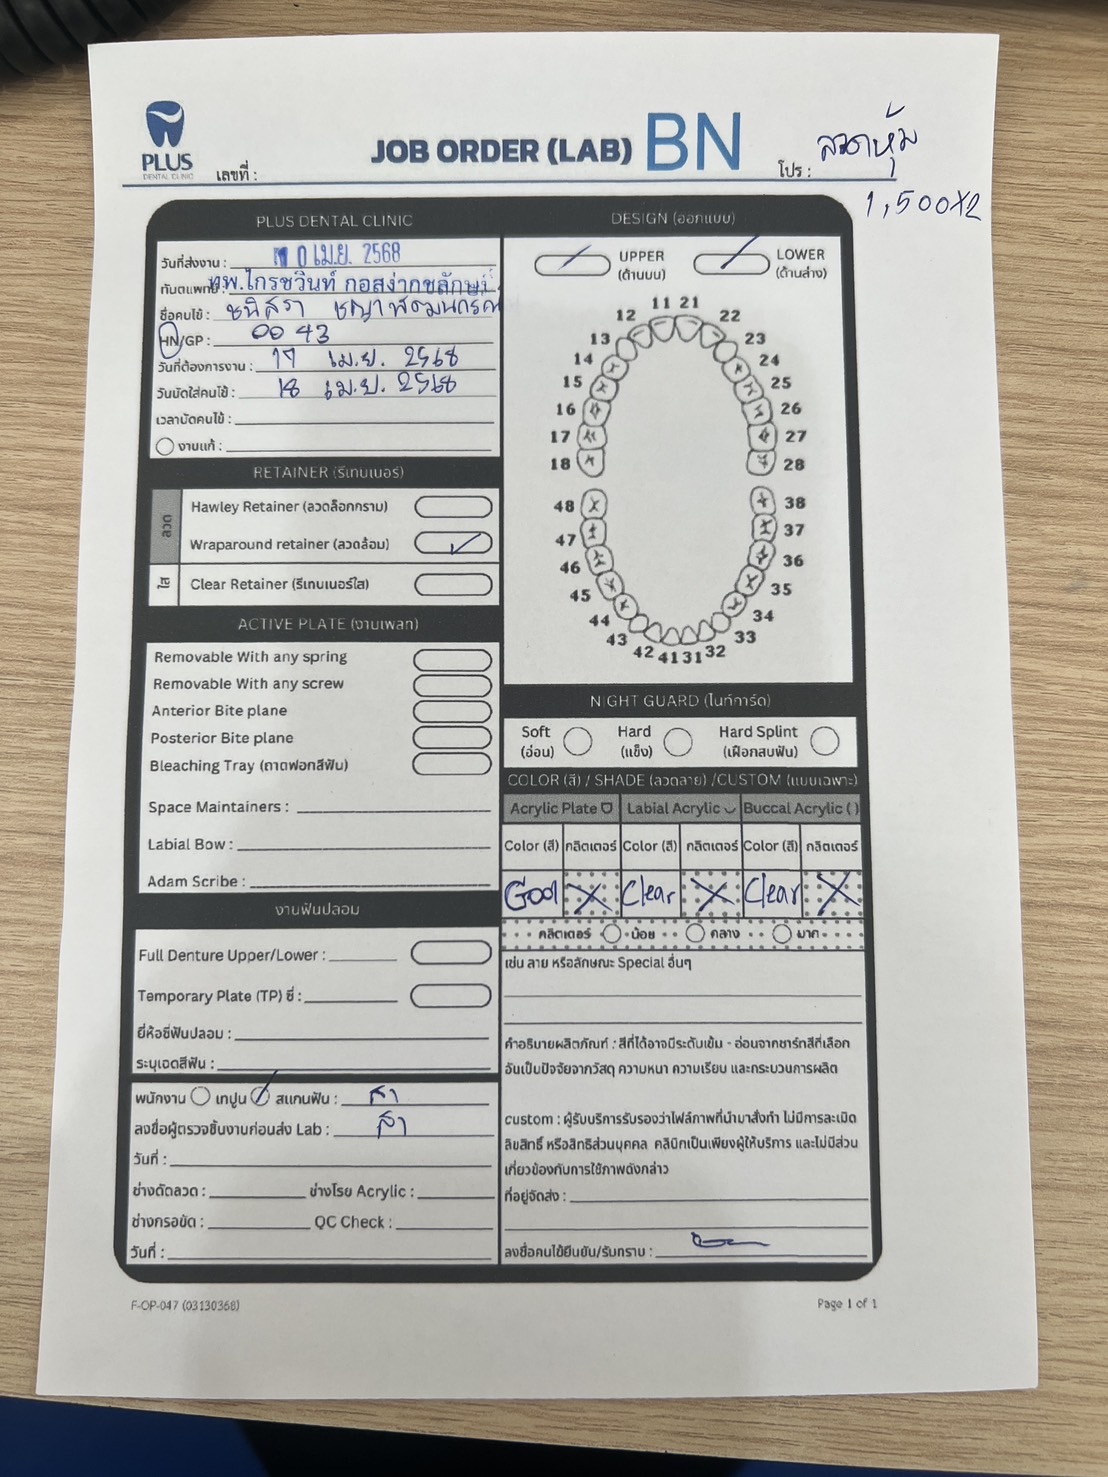 PLUS
DENTAL CLINIC
เลขที่ :
JOB ORDER (LAB) BN
โปร : ลวดหุ้ม
1,500X2
PLUS DENTAL CLINIC
วันที่ส่งงาน : 10 เม.ย. 2568
ทันตแพทย์ : ทพ.ไกรชวินท์
ชื่อคนไข้ : ชนิสรา
HN/GP : 0043
วันที่ต้องการงาน : 17 เม.ย. 2568
วันนัดใส่คนไข้ : 18 เม.ย. 2568
เวลานัดคนไข้ :
งานแก้ :
RETAINER (รีเทนเนอร์)
ลวด
Hawley Retainer (ลวดล็อกกราม)
Wraparound retainer (ลวดล้อม)
ใส
Clear Retainer (รีเทนเนอร์ใส)
ACTIVE PLATE (งานเพลท)
Removable With any spring
Removable With any screw
Anterior Bite plane
Posterior Bite plane
Bleaching Tray (ถาดฟอกสีฟัน)
Space Maintainers :
Labial Bow :
Adam Scribe :
งานฟันปลอม
Full Denture Upper/Lower :
Temporary Plate (TP) ซี่ :
ยี่ห้อซี่ฟันปลอม :
ระบุเฉดสีฟัน :
พนักงาน เทปูน สแกนฟัน : สา
ลงชื่อผู้ตรวจชิ้นงานก่อนส่ง Lab : สา
วันที่ :
ช่างดัดลวด : ช่างโรย Acrylic :
ช่างกรอขัด : QC Check :
วันที่ :
DESIGN (ออกแบบ)
UPPER
(ด้านบน)
LOWER
(ด้านล่าง)
11 21
12 22
13 23
14 24
15 25
16 26
17 27
18 28
48 38
47 37
46 36
45 35
44 34
43 33
42 41 31 32
NIGHT GUARD (ไนท์การ์ด)
Soft
(อ่อน)
Hard
(แข็ง)
Hard Splint
(เฝือกสบฟัน)
COLOR (สี) / SHADE (ลวดลาย) /CUSTOM (แบบเฉพาะ)
Acrylic Plate Labial Acrylic Buccal Acrylic ( )
Color (สี) กลิตเตอร์ Color (สี) กลิตเตอร์ Color (สี) กลิตเตอร์
God X Clear X Clear X
กลิตเตอร์ น้อย กลาง มาก
เช่น ลาย หรือลักษณะ Special อื่นๆ
คำอธิบายผลิตภัณฑ์ : สีที่ได้อาจมีระดับเข้ม - อ่อนจากชาร์ทสีที่เลือก
อันเป็นปัจจัยจากวัสดุ ความหนา ความเรียบ และกระบวนการผลิต
custom : ผู้รับบริการรับรองว่าไฟล์ภาพที่นำมาสั่งทำ ไม่มีการละเมิด
ลิขสิทธิ์ หรือสิทธิส่วนบุคคล คลินิกเป็นเพียงผู้ให้บริการ และไม่มีส่วน
เกี่ยวข้องกับการใช้ภาพดังกล่าว
ที่อยู่จัดส่ง :
ลงชื่อคนไข้ยืนยัน/รับทราบ :
F-OP-047 (03130368)
Page 1 of 1